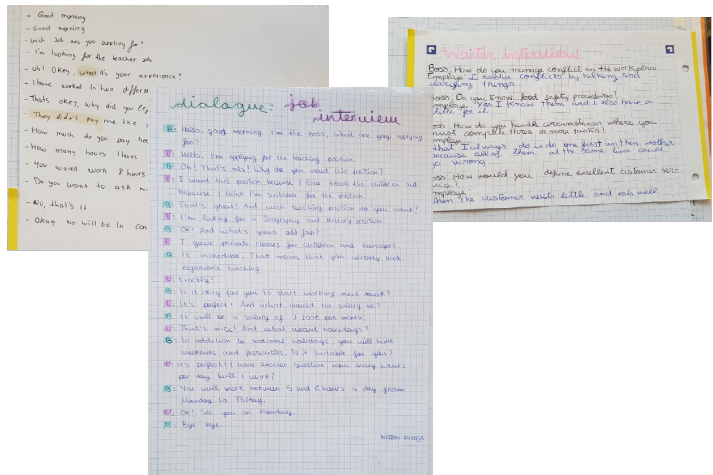 - Good morning
- Good morning
- wich Job are you applying for?
- I'm looking for the teacher Job
- Oh! Okey, what is your experience?
- I have worked in two
- Thats okey, why did you
- They didn't pay me the
- How much do you pay
- How many hours I have
- You would work 8 hours
- Do you want to ask
- No, that's it
- Okay we will be In
dialogue: job
interview
B: Hello, good morning. I'm the boss, what are you applying
for?
E: Hello, I'm applying for the teaching position.
B: Oh! That's nice! Why do you want this position?
E: I want this position because I love teach the children and
because I think I'm suitable for the position.
B: That's great! And wich teaching position do you want?
E: I'm looking for a Geography and History position.
B: OK! And what's your old job?
E: I gave private classes for children and teenagers.
B: It incredible. That means that you already had
experience teaching.
E: Exactly!
B: Is it okay for you to start working next week?
E: It's perfect! And what would the salary be?
B: It will be a salary of 2.100€ per month.
E: That's nice! And what about holidays?
B: In addition to national holidays, you will have
weekends and festivities. Is it suitable for you?
E: it's perfect! I have another question how many hours
per day will I work?
B: You will work between 5 and 6 hours a day from
Monday to Friday.
E: OK! See you on Monday.
B: Bye bye.
Waiter interview
Boss. How do you manage conflict in the workplace
Employe I resolve conflicts by talking and
clarifying things
Boss. Do you know food safety procedures?
employe. Yes I know them and I also have a
title for it.
Boss How do you handle circumstances where you
must complete three or more tasks?
employe
that I always do is do one first un then another
because all of them at the same time could
go wrong.
Boss: How would you define excellent customer
employe.
Then the customer waits little and eats well.